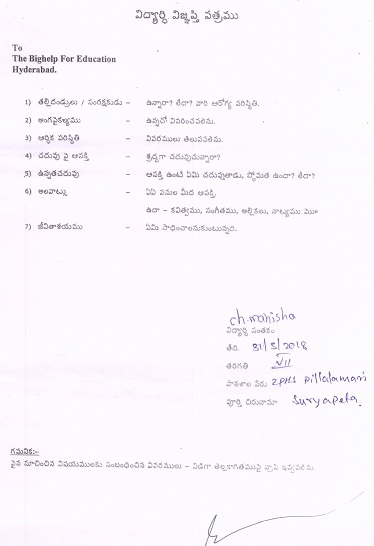 విద్యార్థి విజ్ఞప్తి పత్రము
To
The Bighelp For Education
Hyderabad.
1) తల్లిదండ్రులు / సంరక్షకుడు – ఉన్నారా? లేదా? వారి ఆరోగ్య పరిస్థితి.
2) అంగవైకల్యము – ఉన్నచో వివరించవలెను.
3) ఆర్థిక పరిస్థితి – వివరములు తెలుపవలెను.
4) చదువు పై ఆసక్తి – శ్రద్ధగా చదువుచున్నారా?
5) ఉన్నతచదువు – ఆసక్తి ఉంటే ఏమి చదువుతాడు, స్తోమత ఉందా? లేదా?
6) అలవాట్లు – ఏఏ పనుల మీద ఆసక్తి.
ఉదా – కవిత్వము, సంగీతము, అల్లికలు, నాట్యము మొ॥
7) జీవితాశయము – ఏమి సాధించాలనుకుంటున్నది.
ch.manisha
విద్యార్థి సంతకం
తేది. 31/5/2018
తరగతి VII
పాఠశాల పేరు ZPHS Pillalamarri
పూర్తి చిరునామా Suryapeta.
గమనిక:-
పైన సూచించిన విషయములకు సంబంధించిన వివరములు – విడిగా తెల్లకాగితముపై వ్రాసి ఇవ్వవలెను.